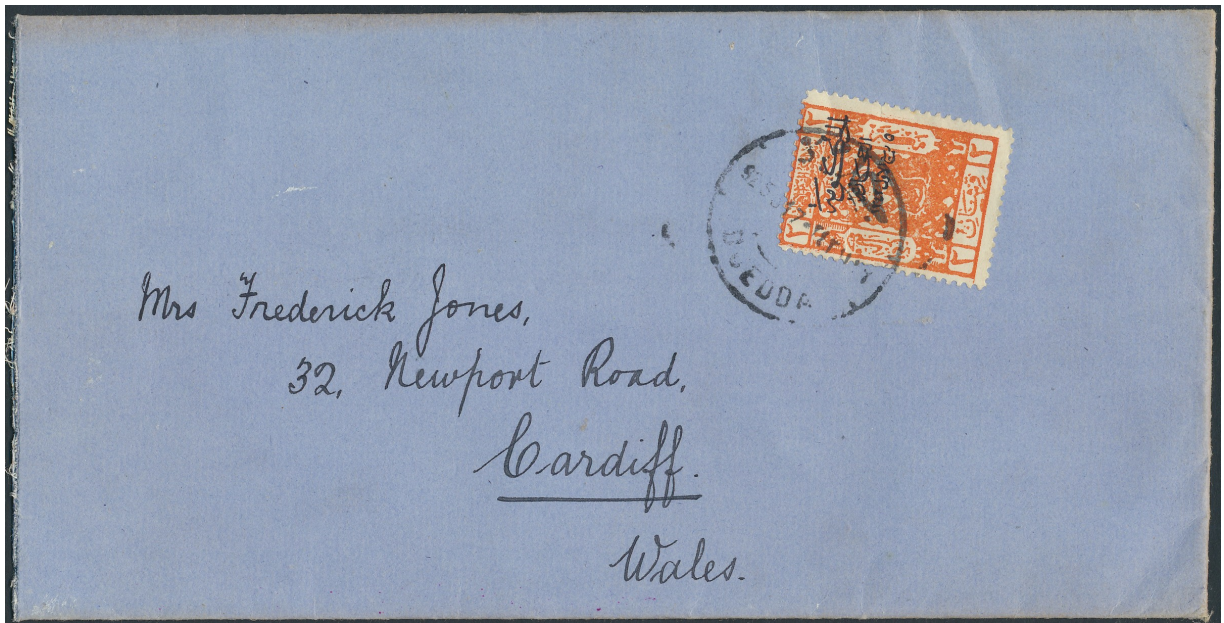 DJEDDA
Mrs Frederick Jones,
32, Newport Road,
Cardiff.
Wales.